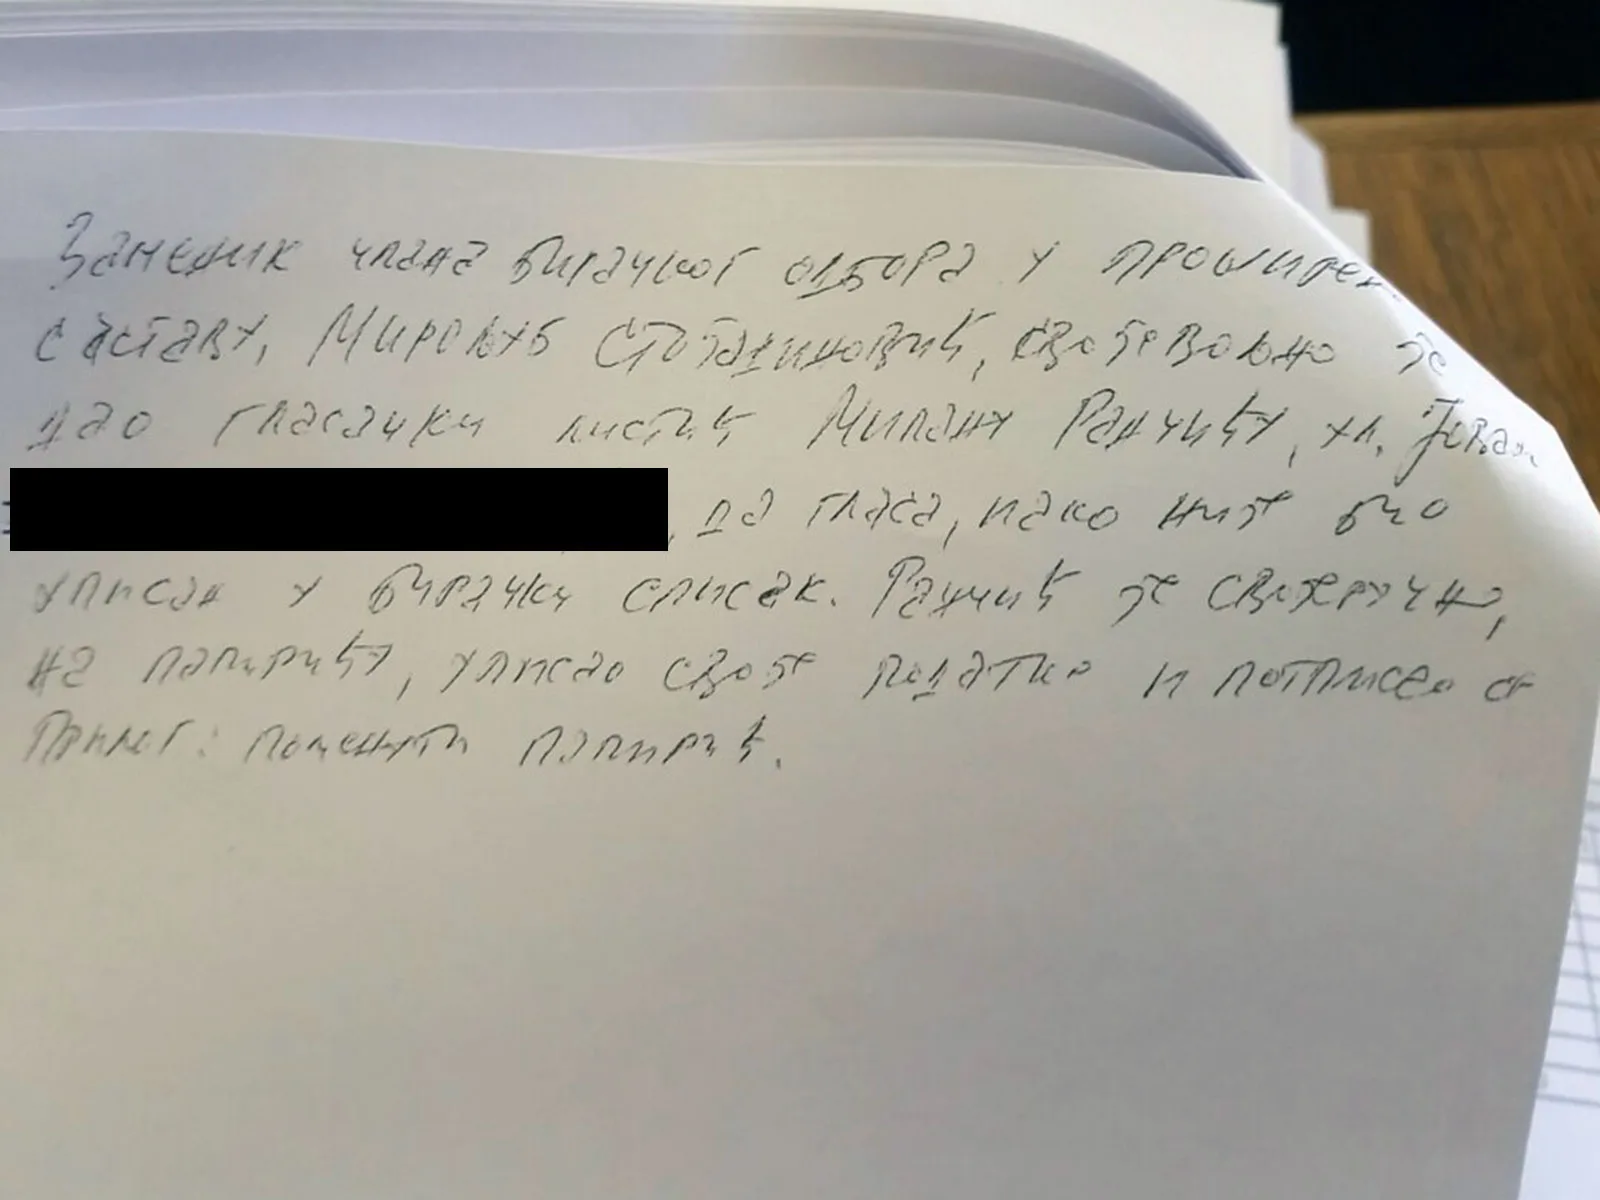 Заменик члана бирачког одбора у проширен
саставу, Миролуб Стојадиновић, својевољно је
дао гласачки листић Милану Ранчићу, ул. Јован
, да гласа, иако није био
уписан у бирачки списак. Ранчић је својеручно,
на папирићу, уписао своје податке и потписао се
Прилог: поменути папирић.